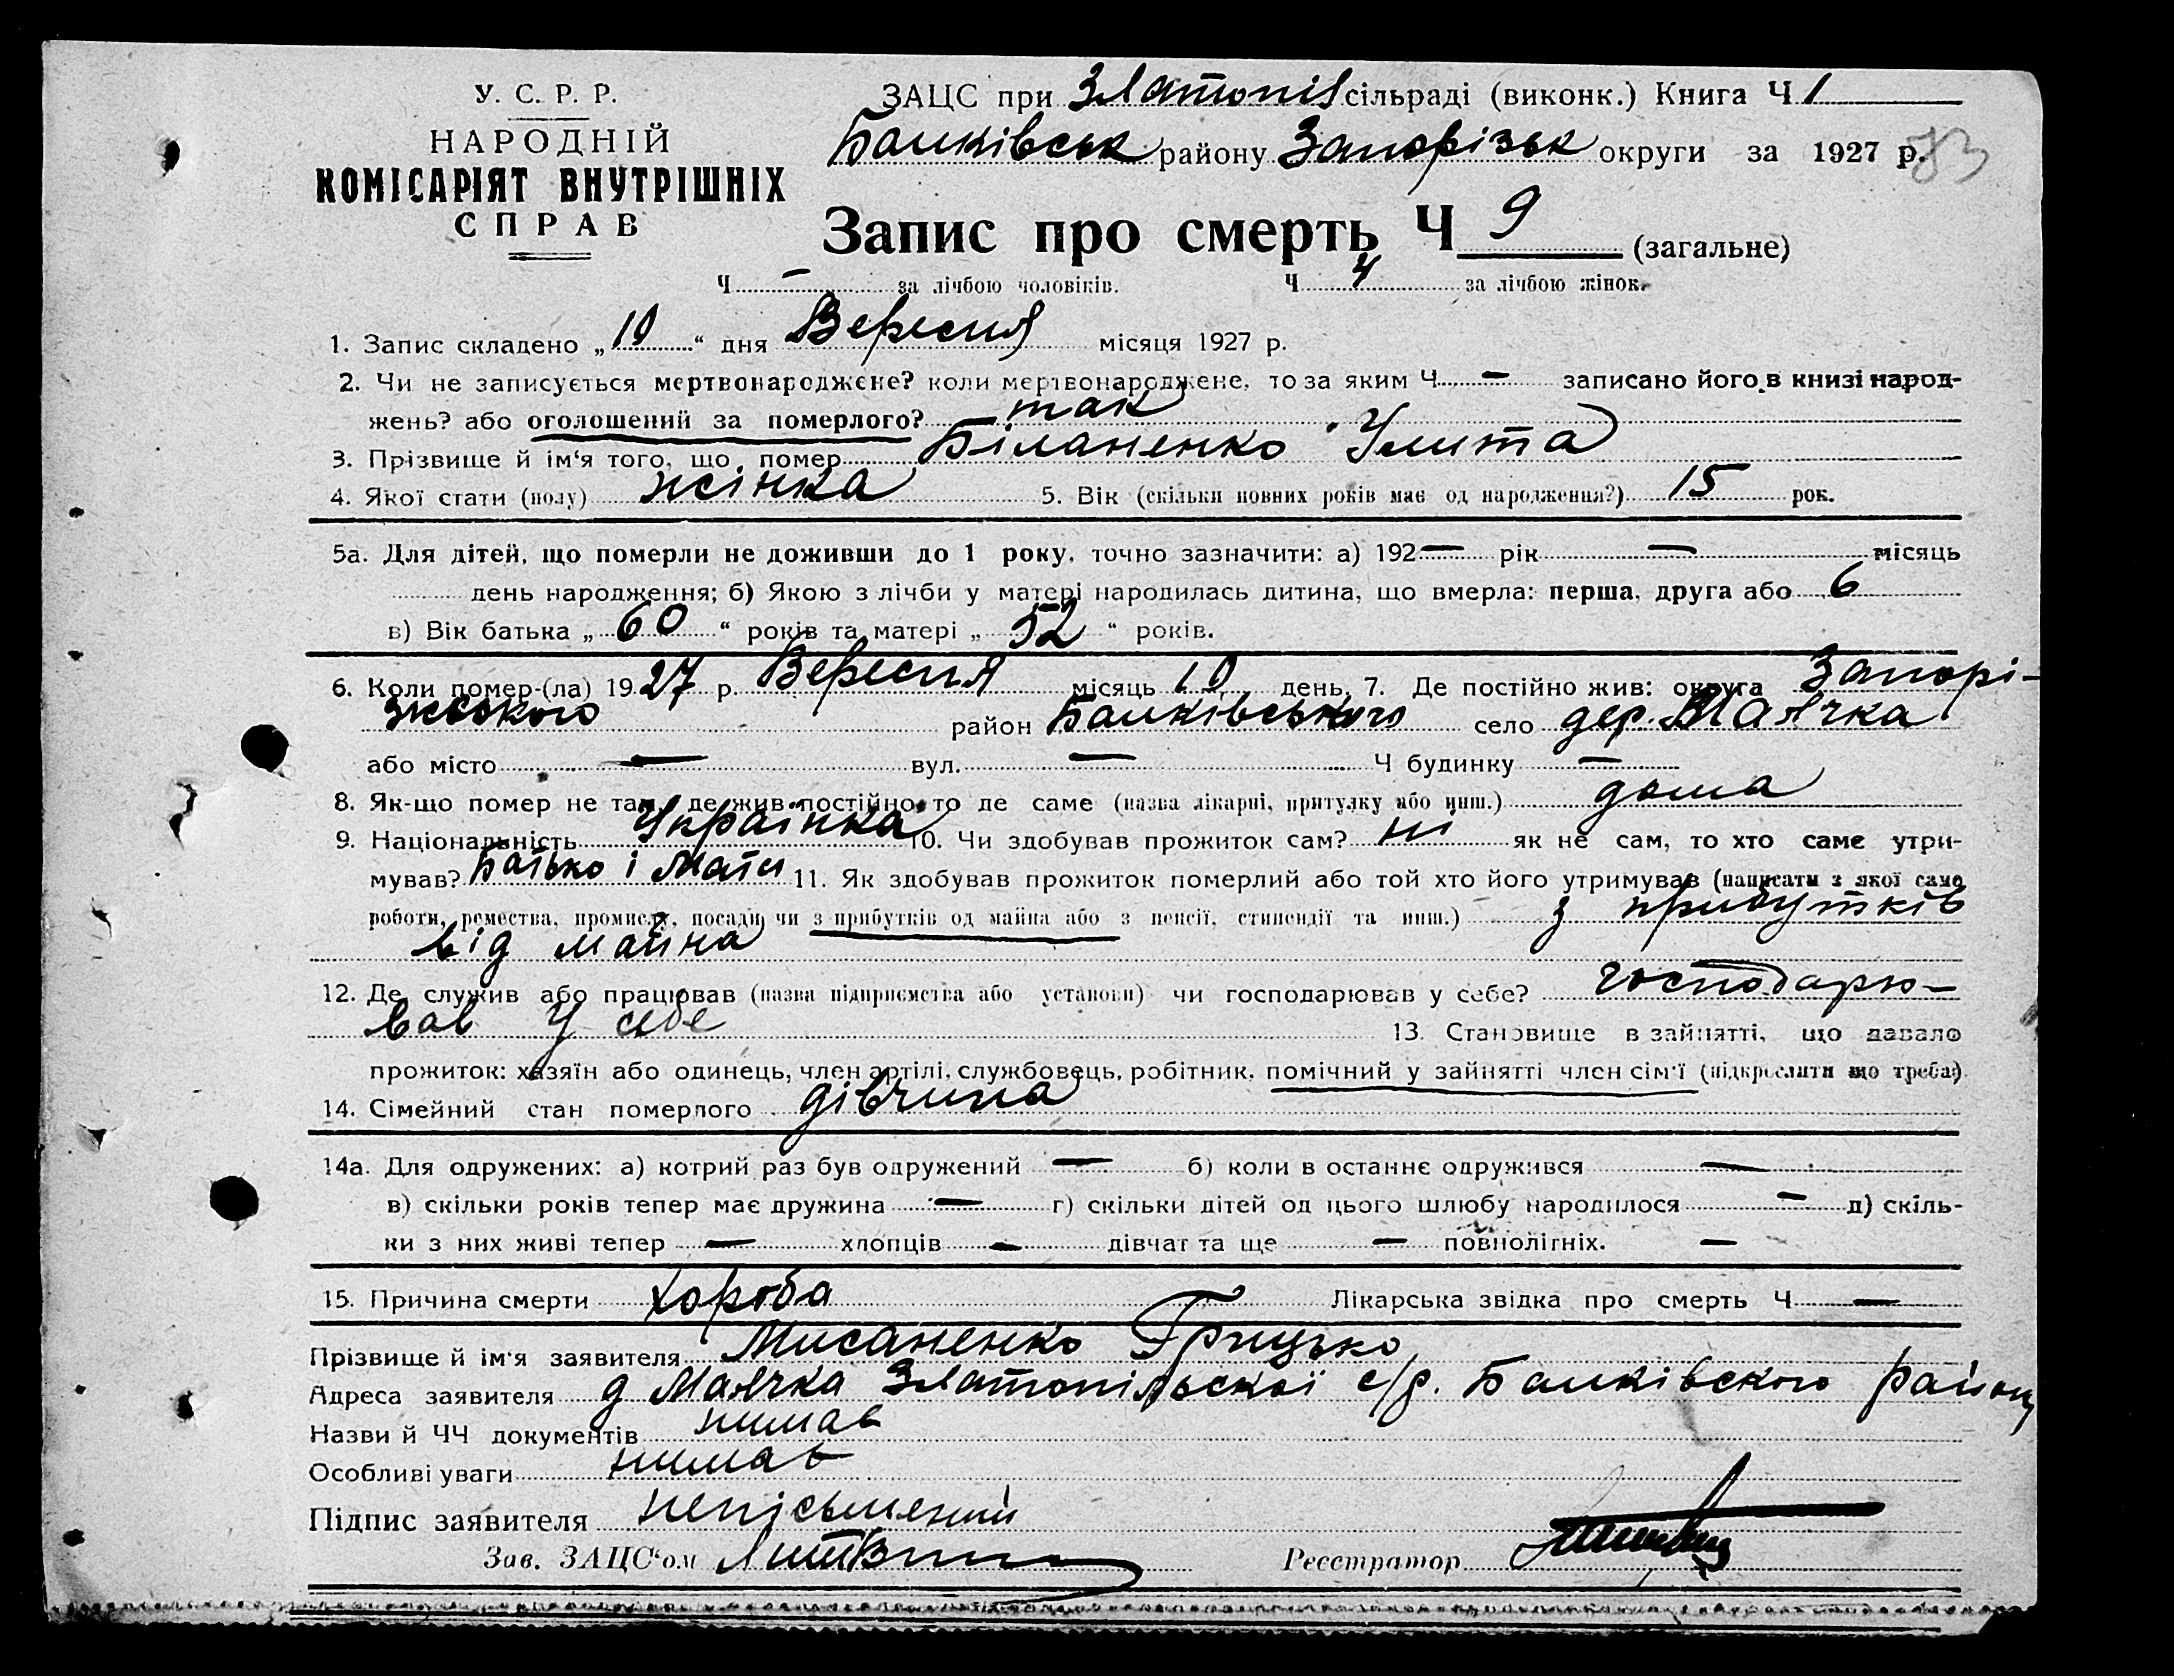 У. С. Р. Р.
НАРОДНІЙ
КОМІСАРІЯТ ВНУТРІШНІХ
СПРАВ
ЗАЦС при Златопіл сільраді (виконк.) Книга Ч 1
Балківськ району Запорізьк округи за 1927 р. 83
Запис про смерть Ч 9 (загальне)
Ч — за лічбою чоловіків. Ч 4 за лічбою жінок.
1. Запис складено „10“ дня Вересня місяця 1927 р.
2. Чи не записується мертвонароджене? коли мертвонароджене, то за яким Ч — записано його в книзі народ-
жень? або оголошений за померлого? так
3. Прізвище й ім‘я того, що помер Біланенко Улита
4. Якої стати (полу) жінка 5. Вік (скільки повних років має од народження?) 15 рок.
5а. Для дітей, що померли не доживши до 1 року, точно зазначити: а) 192— рік — місяць
день народження; б) Якою з лічби у матері народилась дитина, що вмерла: перша, друга або 6
в) Вік батька „60“ років та матері „52“ років.
6. Коли помер-(ла) 1927 р. Вересня місяць 10 день. 7. Де постійно жив: округа Запорі-
зького район Балківського село дер. Маячка
або місто — вул. — Ч будинку —
8. Як-що помер не там, де жив постійно, то де саме (назва лікарні, притулку або инш.) дома
9. Національність Українка 10. Чи здобував прожиток сам? ні як не сам, то хто саме утри-
мував? Батько і Мати 11. Як здобував прожиток померлий або той хто його утримував (написати з якої саме
роботи, ремества, промислу, посади чи з прибутків од майна або з пенсії, стипендії та инш.) з прибутків
від майна
12. Де служив або працював (назва підприємства або установи) чи господарював у себе? господарю-
вав у себе 13. Становище в зайнятті, що давало
прожиток: хазяїн або одинець, член артілі, службовець, робітник, помічний у зайнятті член сім‘ї (підкреслити що треба)
14. Сімейний стан померлого дівчина
14а. Для одружених: а) котрий раз був одружений — б) коли в останнє одружився —
в) скільки років тепер має дружина — г) скільки дітей од цього шлюбу народилося — д) скіль-
ки з них живі тепер — хлопців — дівчат та ще — повнолітніх. —
15. Причина смерти Хороба Лікарська звідка про смерть Ч —
Прізвище й ім‘я заявителя Мисаненко Грицько
Адреса заявителя д Маячка Златопільскої с/р. Балківского району
Назви й ЧЧ документів нимає
Особливі уваги нимає
Підпис заявителя непісьмений
Зав. ЗАЦС‘ом Литвин Реєстратор